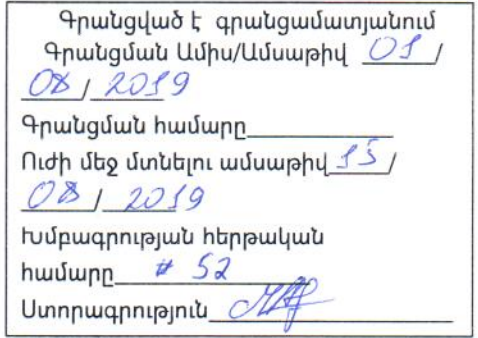 Գրանցված է գրանցամատյանում
Գրանցման Ամիս/Ամսաթիվ 01 /
08 / 2019
Գրանցման համարը
Ուժի մեջ մտնելու ամսաթիվ 15 /
08 / 2019
Խմբագրության հերթական
համարը # 52
Ստորագրություն